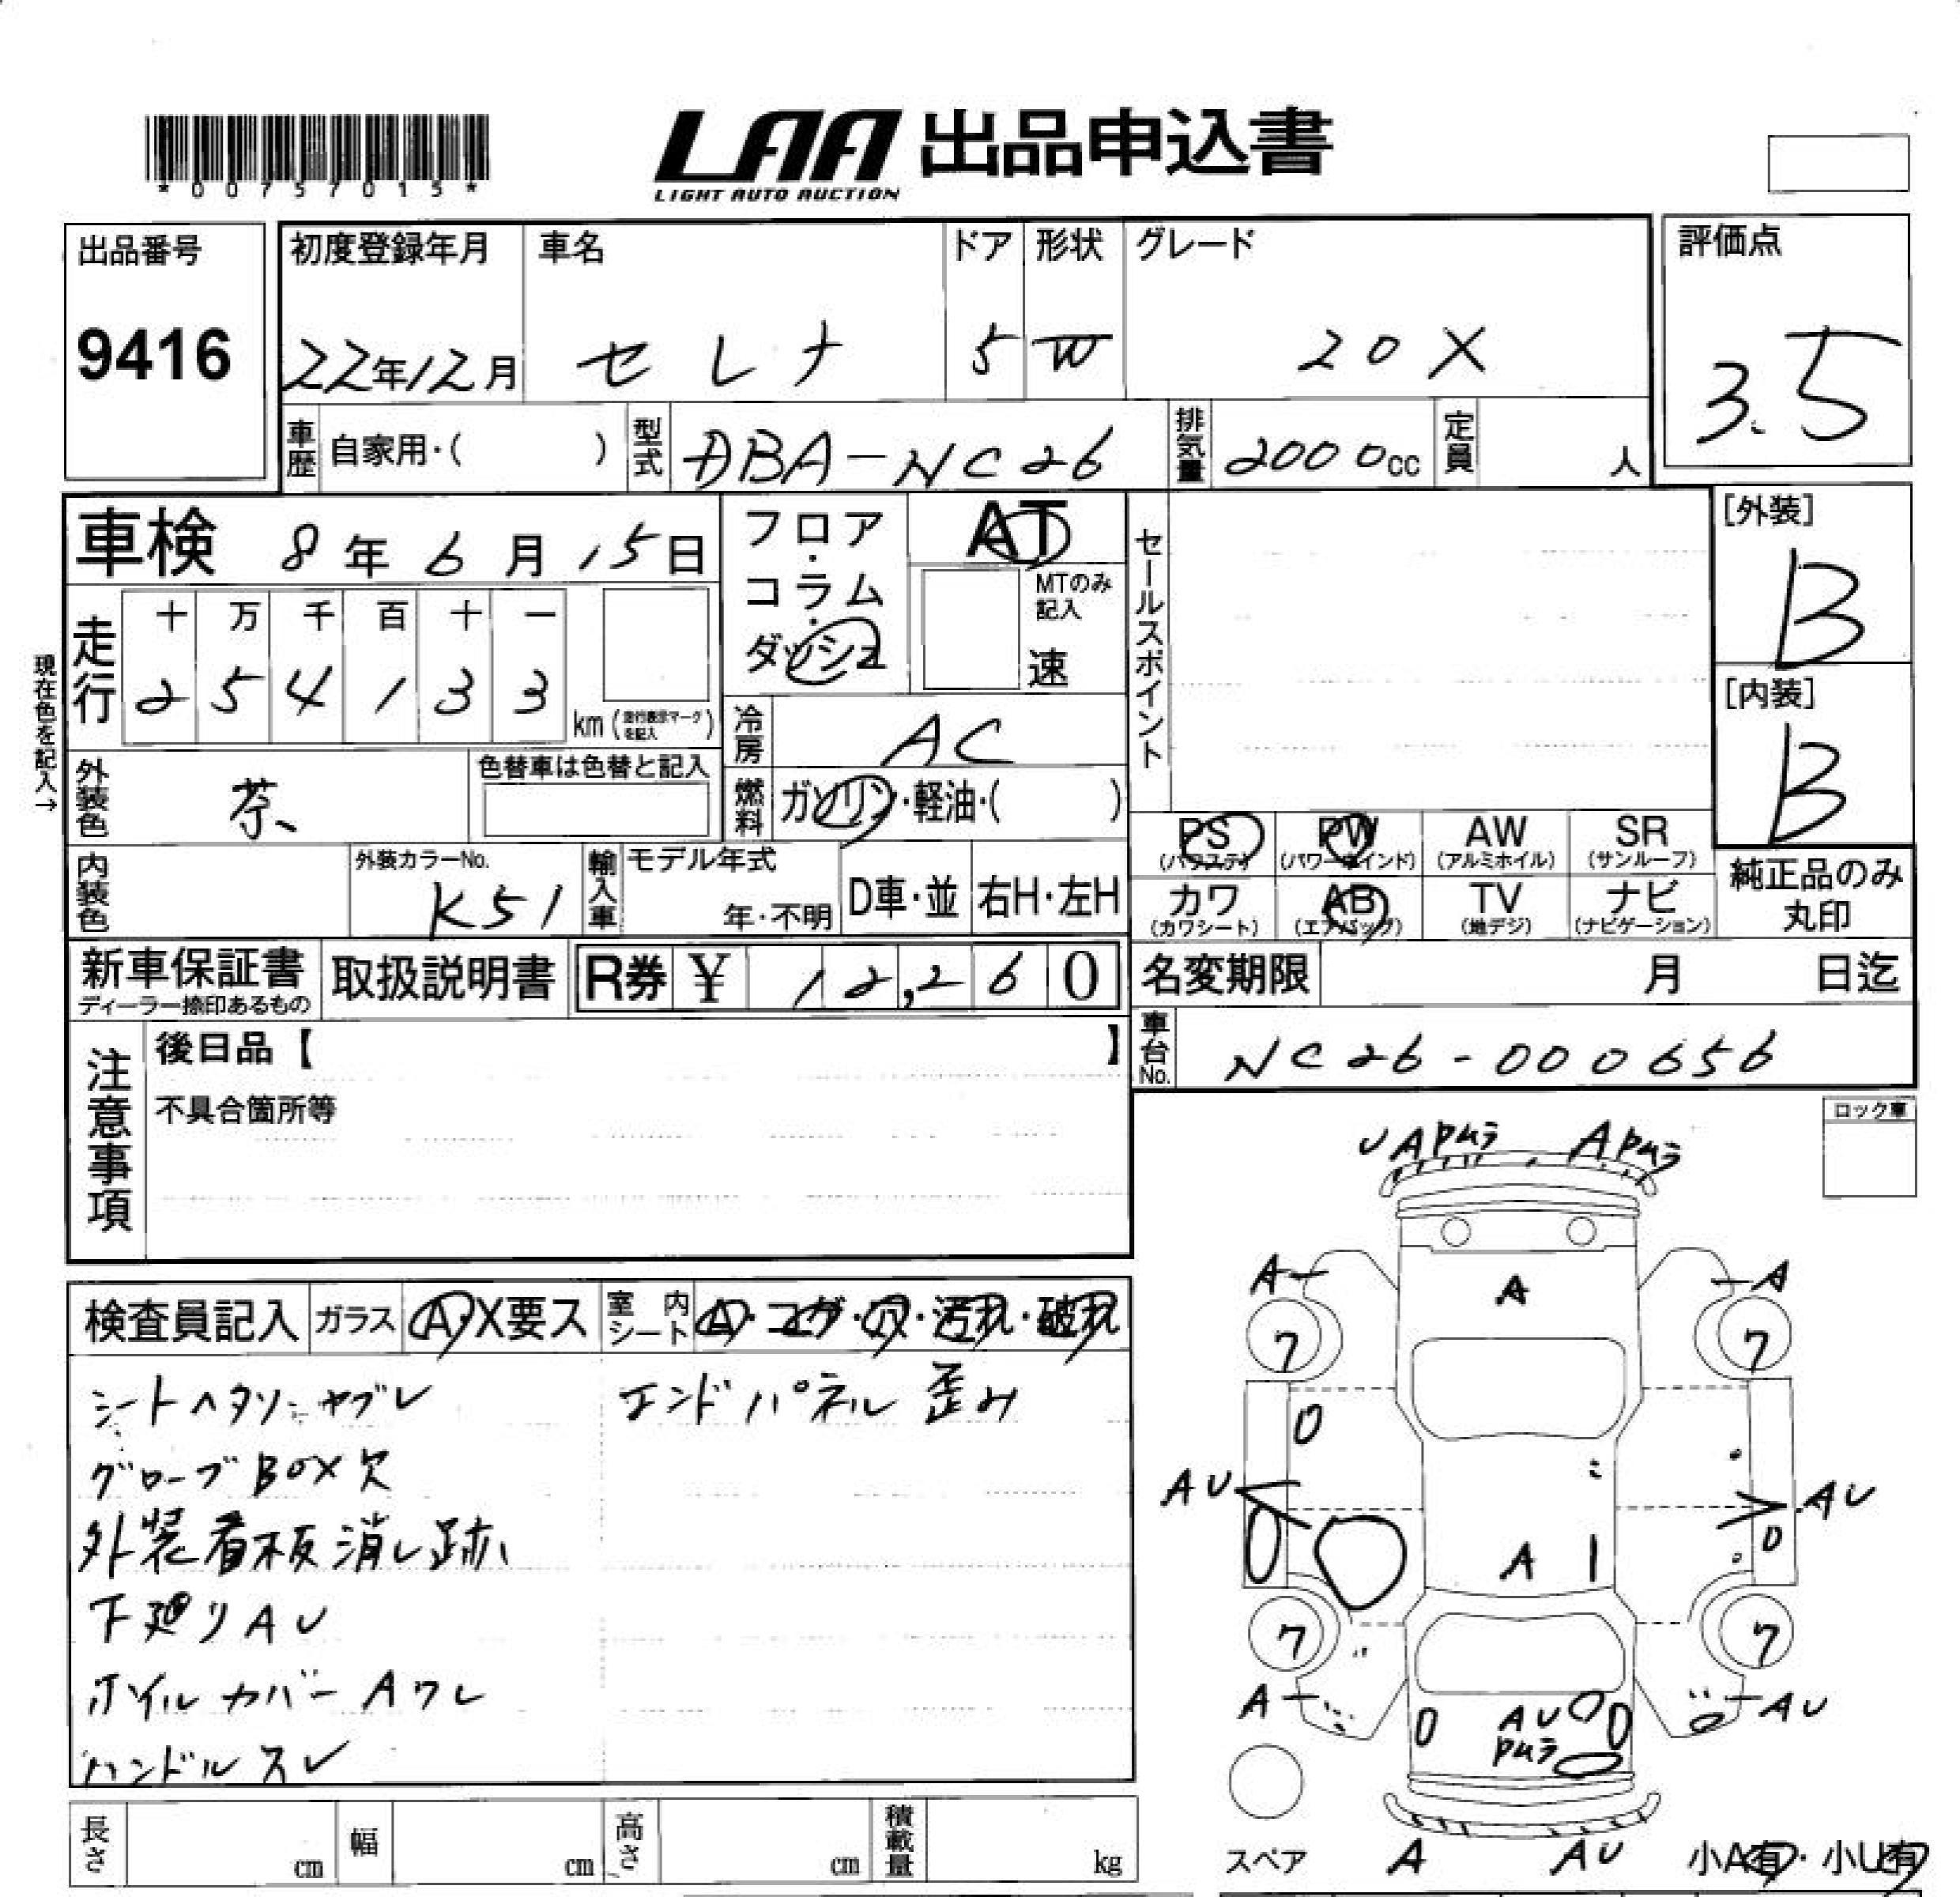 *00757015*
LAA 出品申込書
LIGHT AUTO AUCTION
出品番号
9416
初度登録年月
22年12月
車名
セレナ
ドア
5
形状
W
グレード
20X
評価点
3.5
車歴
自家用・( )
型式
DBA-NC26
排気量
2000cc
定員
人
車検 8年6月15日
フロア・コラム・ダッシュ
AT
MTのみ記入
速
セールスポイント
[外装]
B
[内装]
B
現在色を記入→
走行
十 万 千 百 十 一
2 5 4 1 3 3
km (走行表示マークを記入)
冷房
AC
外装色
茶
色替車は色替と記入
燃料
ガソリン・軽油・( )
内装色
外装カラーNo.
K51
輸入車
モデル年式
年・不明
D車・並
右H・左H
PS (パワステ)
PW (パワーウインド)
AW (アルミホイル)
SR (サンルーフ)
カワ (カワシート)
AB (エアバッグ)
TV (地デジ)
ナビ (ナビゲーション)
純正品のみ丸印
新車保証書
ディーラー捺印あるもの
取扱説明書
R券 ¥ 12,260
名変期限
月 日迄
車台No.
NC26-000656
注意事項
後日品【 】
不具合箇所等
ロック車
UAPムラ APムラ
A A
A
7 7
AU AU
A
7 7
A AU
AU
Pムラ
スペア
A AU
小A有・小U有
検査員記入
ガラス
A・X要ス
室内シート
A・コゲ・穴・汚れ・破れ
シートヘタリ・ヤブレ
エンドパネル歪み
グローブBOX欠
外装看板消し跡
下廻りAU
ホイルカバーAワレ
ハンドルスレ
長さ
cm
幅
cm
高さ
cm
積載量
kg